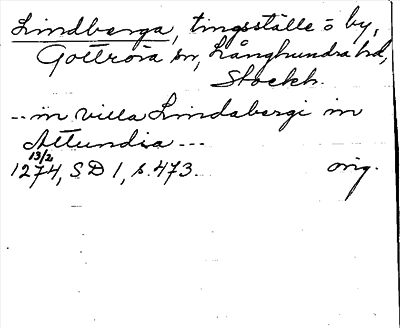 Lindberga, tingsställe o by,
Gottröra sn, Långhundra hd,
Stockh.
-- in villa Lindabergi in
Attundia ---
13/2
1274, SD 1, s. 473. orig.